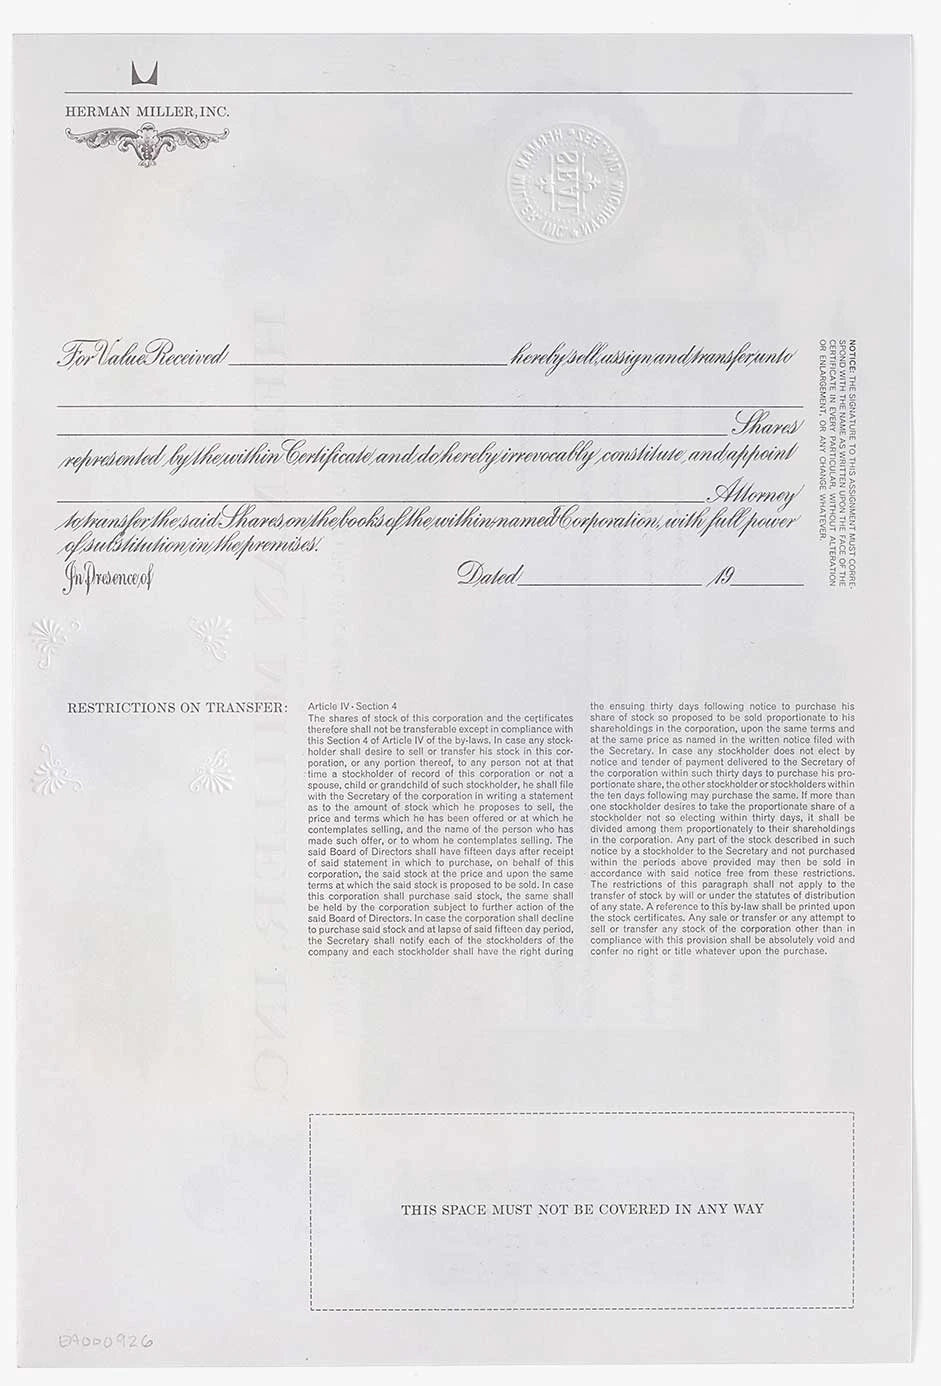 HERMAN MILLER, INC.
HERMAN MILLER INC. ZEELAND MICHIGAN
SEAL
For Value Received hereby sell, assign and transfer unto
Shares
represented by the within Certificate, and do hereby irrevocably constitute and appoint
Attorney
to transfer the said Shares on the books of the within named Corporation, with full power
of substitution in the premises.
In Presence of
Dated 19
NOTICE: THE SIGNATURE TO THIS ASSIGNMENT MUST CORRE-
SPOND WITH THE NAME AS WRITTEN UPON THE FACE OF THE
CERTIFICATE IN EVERY PARTICULAR, WITHOUT ALTERATION
OR ENLARGEMENT, OR ANY CHANGE WHATEVER.
RESTRICTIONS ON TRANSFER:
Article IV - Section 4
The shares of stock of this corporation and the certificates
therefore shall not be transferable except in compliance with
this Section 4 of Article IV of the by-laws. In case any stock-
holder shall desire to sell or transfer his stock in this cor-
poration, or any portion thereof, to any person not at that
time a stockholder of record of this corporation or not a
spouse, child or grandchild of such stockholder, he shall file
with the Secretary of the corporation in writing a statement
as to the amount of stock which he proposes to sell, the
price and terms which he has been offered or at which he
contemplates selling, and the name of the person who has
made such offer, or to whom he contemplates selling. The
said Board of Directors shall have fifteen days after receipt
of said statement in which to purchase, on behalf of this
corporation, the said stock at the price and upon the same
terms at which the said stock is proposed to be sold. In case
this corporation shall purchase said stock, the same shall
be held by the corporation subject to further action of the
said Board of Directors. In case the corporation shall decline
to purchase said stock and at lapse of said fifteen day period,
the Secretary shall notify each of the stockholders of the
company and each stockholder shall have the right during
the ensuing thirty days following notice to purchase his
share of stock so proposed to be sold proportionate to his
shareholdings in the corporation, upon the same terms and
at the same price as named in the written notice filed with
the Secretary. In case any stockholder does not elect by
notice and tender of payment delivered to the Secretary of
the corporation within such thirty days to purchase his pro-
portionate share, the other stockholder or stockholders within
the ten days following may purchase the same. If more than
one stockholder desires to take the proportionate share of a
stockholder not so electing within thirty days, it shall be
divided among them proportionately to their shareholdings
in the corporation. Any part of the stock described in such
notice by a stockholder to the Secretary and not purchased
within the periods above provided may then be sold in
accordance with said notice free from these restrictions.
The restrictions of this paragraph shall not apply to the
transfer of stock by will or under the statutes of distribution
of any state. A reference to this by-law shall be printed upon
the stock certificates. Any sale or transfer or any attempt to
sell or transfer any stock of the corporation other than in
compliance with this provision shall be absolutely void and
confer no right or title whatever upon the purchase.
THIS SPACE MUST NOT BE COVERED IN ANY WAY
EA000926